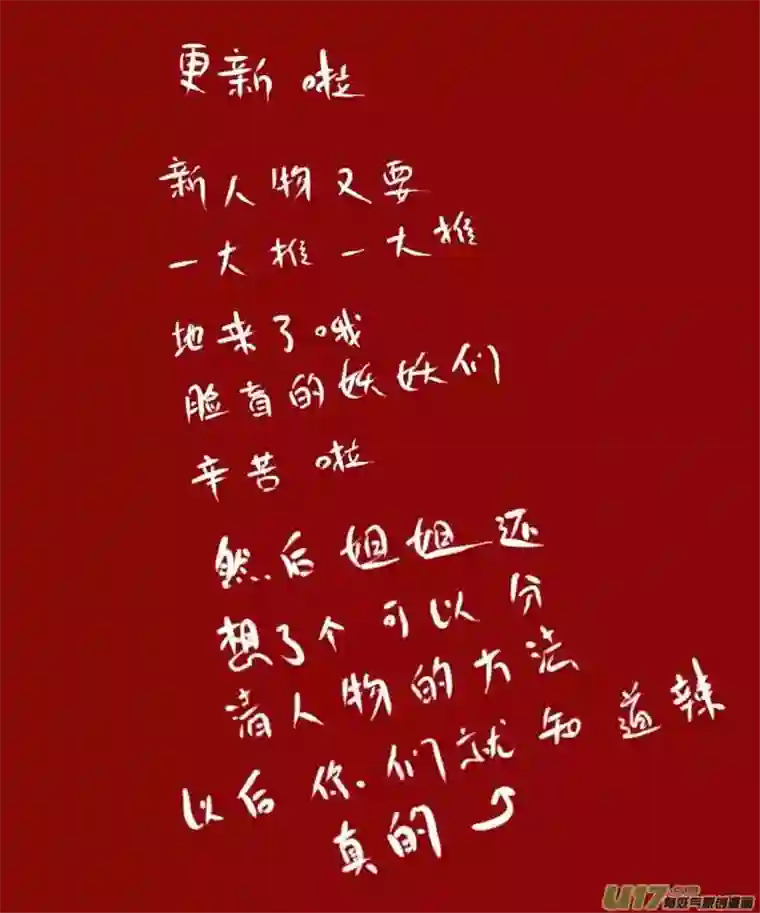 更新啦
新人物又要
一大堆一大堆
地来了哦
脸盲的妖妖们
辛苦啦
然后姐姐还
想了个可以分
清人物的方法
以后你们就知道辣
真的
U17